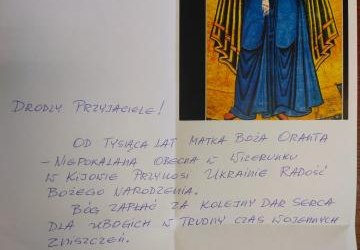 DRODZY PRZYJACIELE!
OD TYSIĄCA LAT MATKA BOŻA ORANTA
- NIEPOKALANA OBECNA W WIZERUNKU
W KIJOWIE PRZYNOSI UKRAINIE RADOŚĆ
BOŻEGO NARODZENIA.
BÓG ZAPŁAĆ ZA KOLEJNY DAR SERCA
DLA UBOGICH W TRUDNY CZAS WOJENNYCH
ZNISZCZEŃ.